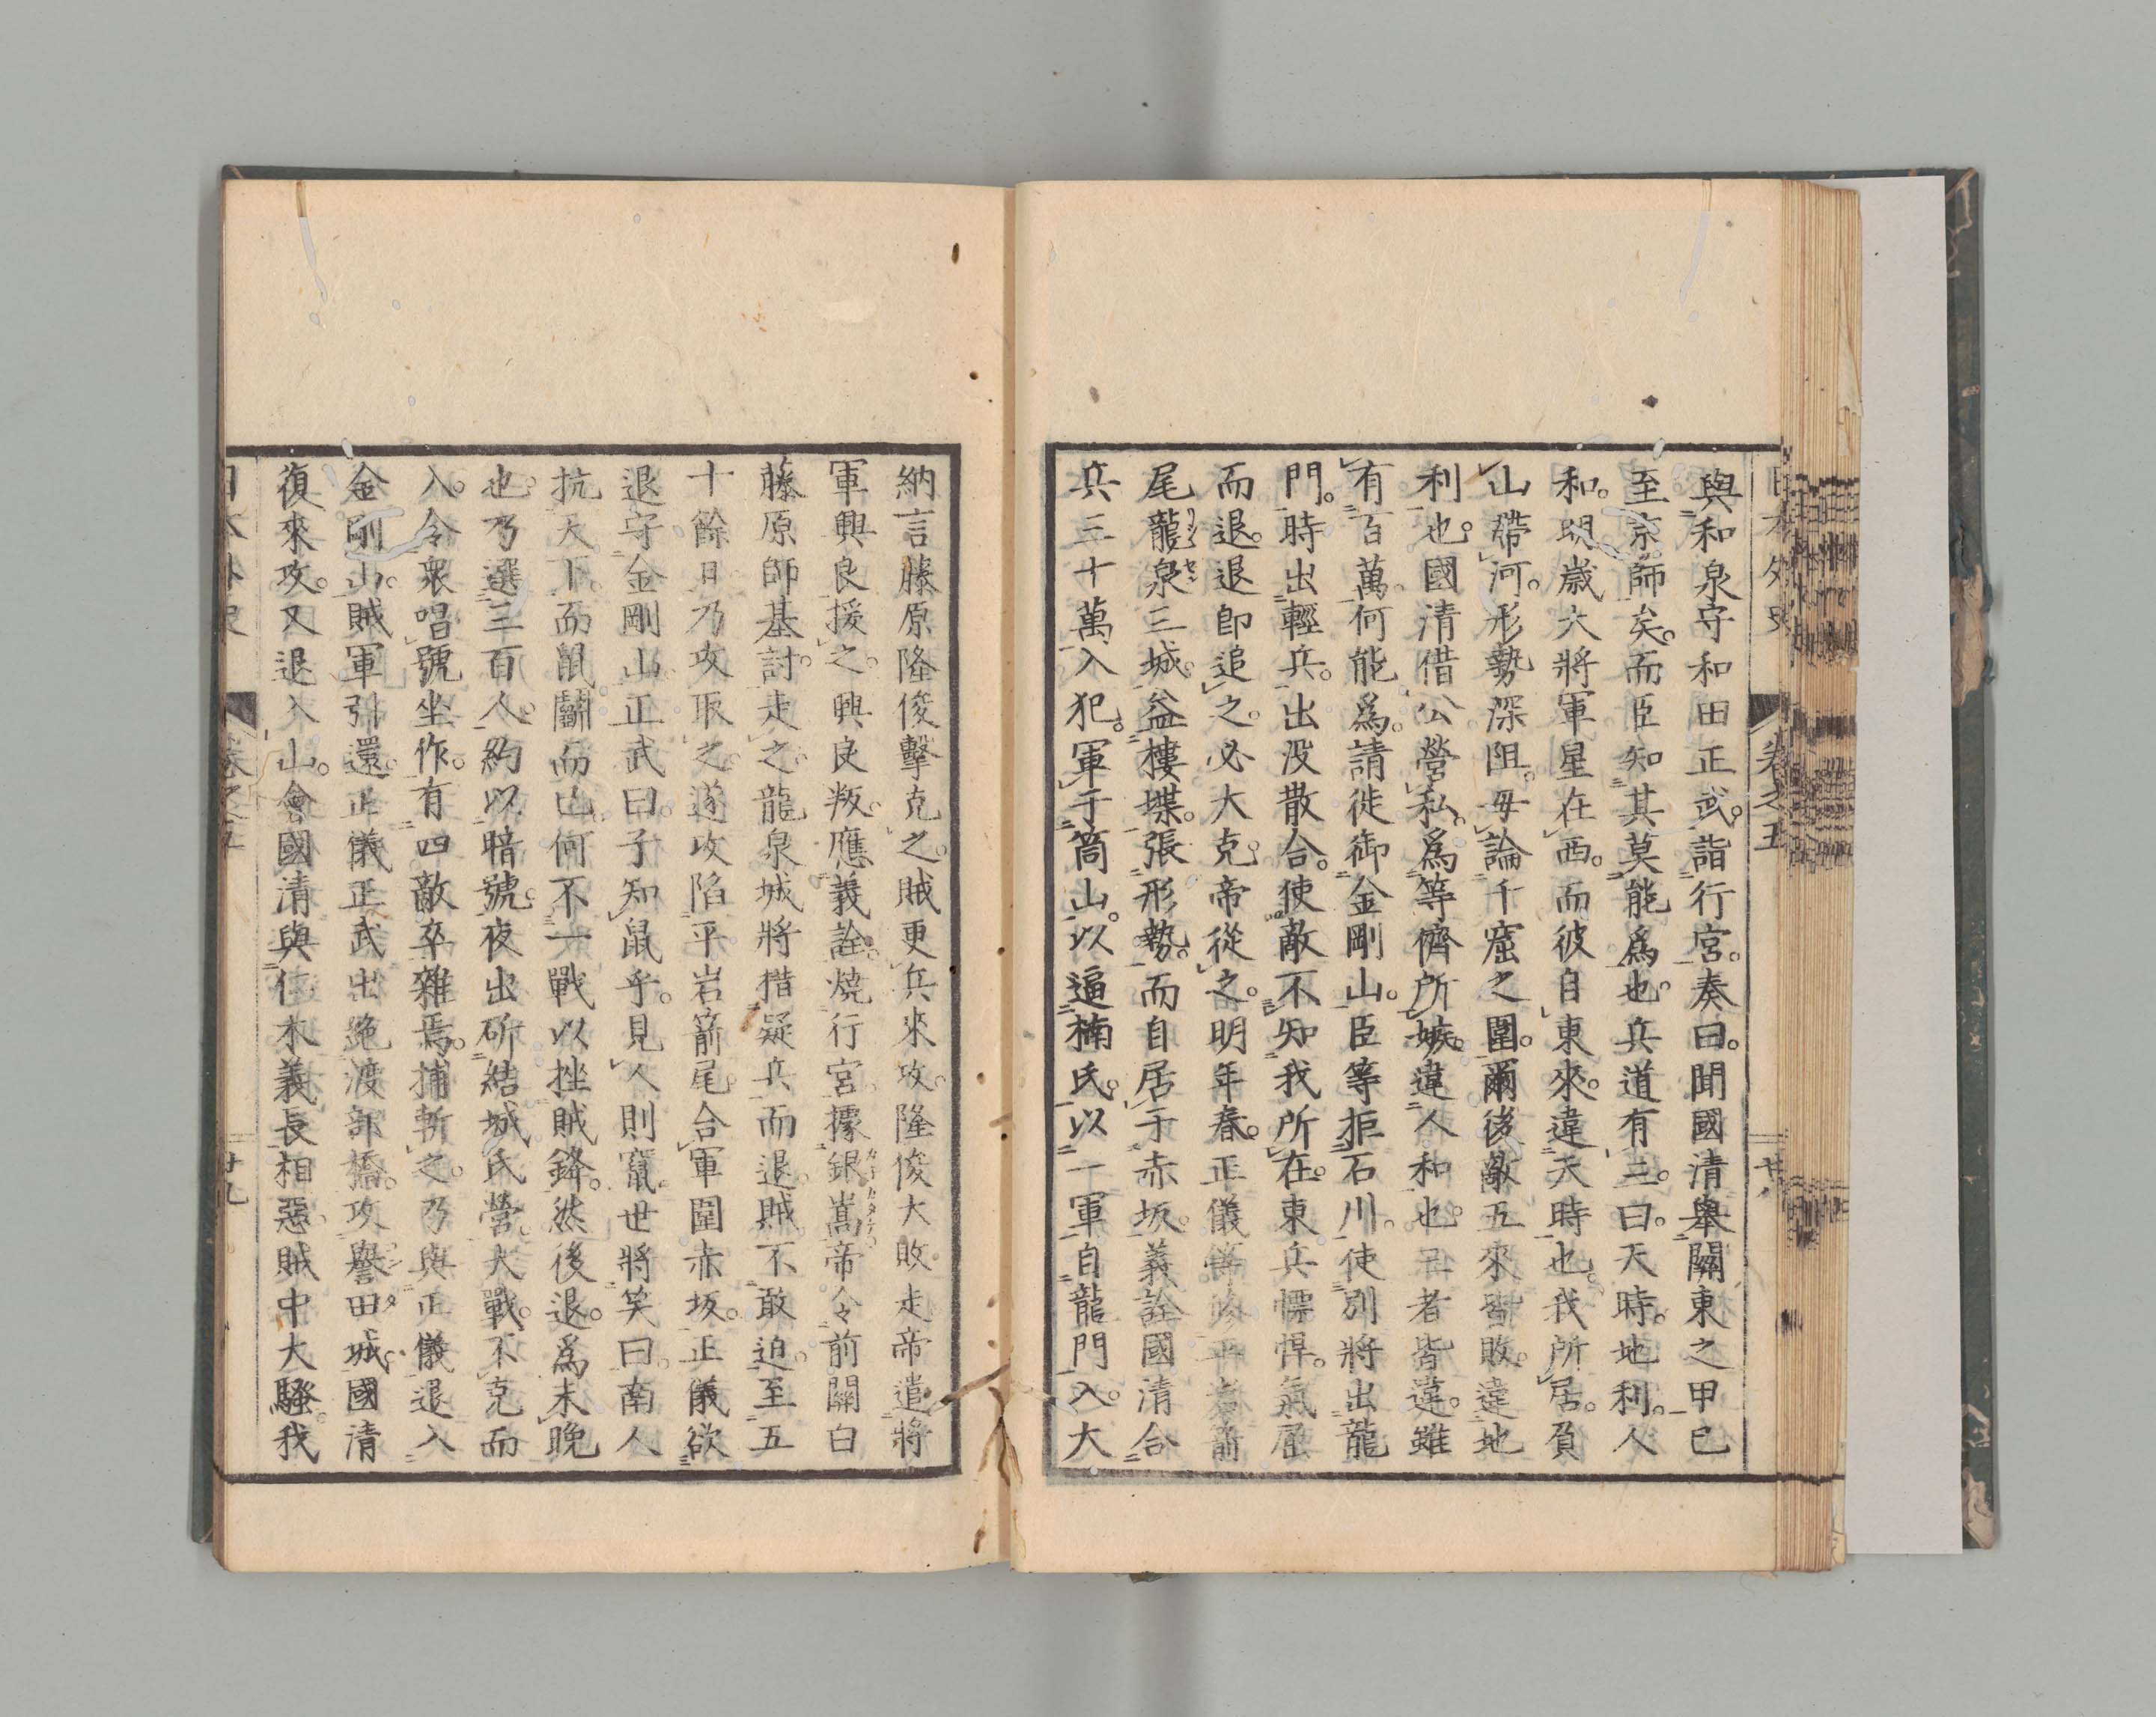 日本外史 卷之五
與和泉守和田正武。詣行宮。奏曰。聞國清舉關東之甲已
至京師矣。而臣知其莫能爲也。兵道有三。曰。天時。地利。人
和。明歲大將軍星在西。而彼自東來。違天時也。我所居。負
山帶河。形勢深阻。毋論千窟之圍。爾後敵五來皆敗。違地
利也。國清借公營私。爲等儕所嫉。違人和也。三者皆違。雖
有百萬。何能爲。請徙御金剛山。臣等拒石川。使別將出龍
門。時出輕兵。出没散合。使敵不知我所在。東兵慓悍。氣屈
而退。退即追之。必大克。帝從之。明年春。正儀等修平岩箭
尾龍泉三城。益樓堞。張形勢。而自居于赤坂。義詮國清合
兵三十萬入犯。軍于筒山。以逼楠氏。以一軍自龍門入。大
納言藤原隆俊擊克之。賊更兵來攻。隆俊大敗走帝遣將
軍興良援之。興良叛。應義詮。燒行宮。據銀嵩。帝令前關白
藤原師基討走之。龍泉城將措疑兵而退。賊不敢迫。至五
十餘日乃攻取之。遂攻陷平岩箭尾。合軍圍赤坂。正儀欲
退守金剛山。正武曰。子知鼠乎。見人則竄。世將笑曰。南人
抗天下。而鼠鬭而已。何不一戰以挫賊鋒。然後退。爲未晚
也。乃選三百人。約以暗號。夜出斫結城氏營。大戰。不克而
入。令衆唱號坐作。有四敵卒雜焉。捕斬之。乃與正儀退入
金剛山。賊軍引還。正儀正武出絶渡部橋。攻譽田城。國清
復來攻。又退入山。會國清與仁木義長相惡。賊中大騷。我
日本外史 卷之五 廿九